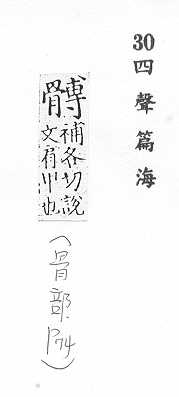 30四聲篇海
髆補各切說
文肩甲也
(骨部.P74)